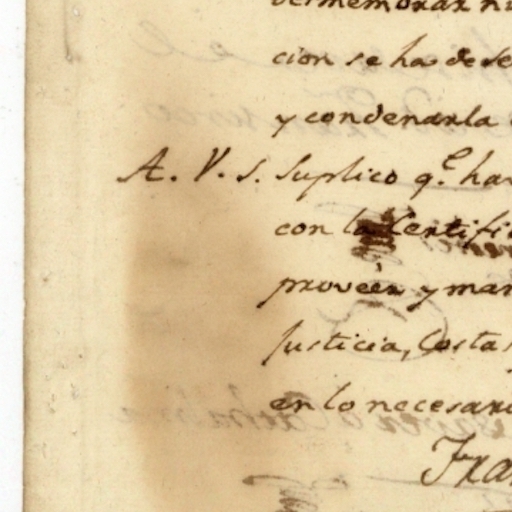 cion se ha de se
y condenarla
A. V. S. Suplico q.e ha
con la Certifi
proveèr y man
Justicia, Costas
en lo necesari
Fra